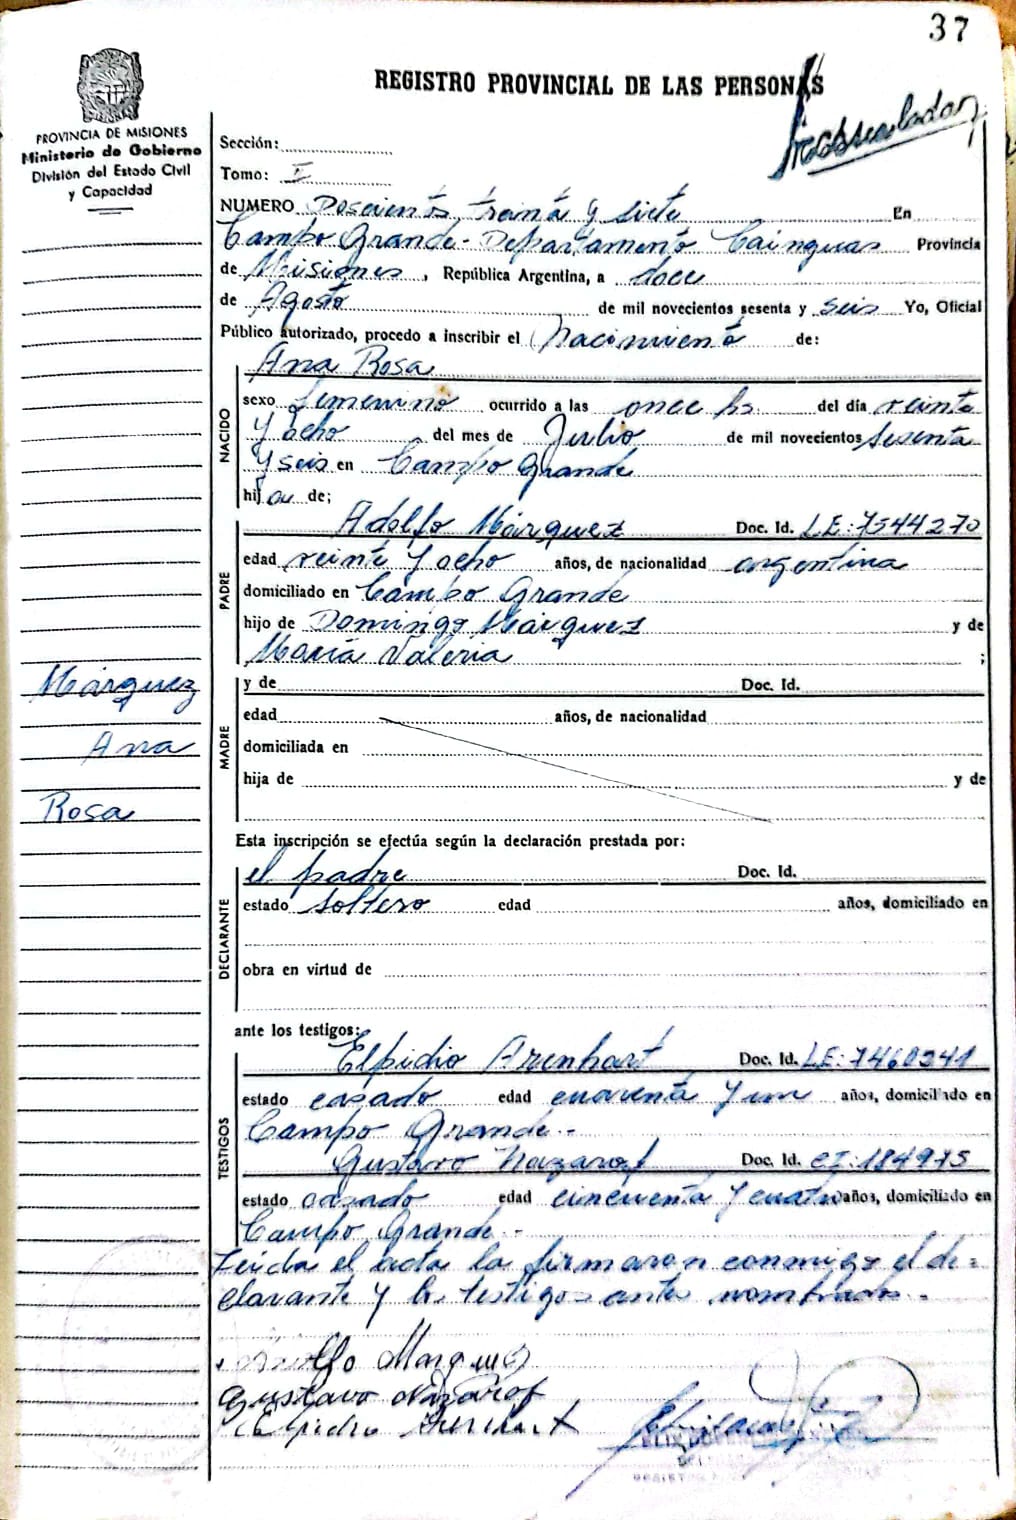 37
REGISTRO PROVINCIAL DE LAS PERSONAS
PROVINCIA DE MISIONES
Ministerio de Gobierno
División del Estado Civil
y Capacidad
Sección:
Tomo: II
NUMERO Doscientos treinta y siete En
Campo Grande - Departamento Cainguas Provincia
de Misiones, República Argentina, a doce
de Agosto de mil novecientos sesenta y seis Yo, Oficial
Público autorizado, procedo a inscribir el Nacimiento de:
Ana Rosa
NACIDO
sexo femenino ocurrido a las once hs. del día veinte
y ocho del mes de Julio de mil novecientos sesenta
y seis en Campo Grande
hija de;
PADRE
Adolfo Márquez Doc. Id. LE: 7544270
edad veinte y ocho años, de nacionalidad argentina
domiciliado en Campo Grande
hijo de Domingo Márquez y de
María Valeria ;
Márquez
Ana
Rosa
MADRE
y de Doc. Id.
edad años, de nacionalidad
domiciliada en
hija de y de
Esta inscripción se efectúa según la declaración prestada por:
DECLARANTE
el padre Doc. Id.
estado soltero edad años, domiciliado en
obra en virtud de
ante los testigos:
TESTIGOS
Elpidio Arenhart Doc. Id. LE: 7460341
estado casado edad cuarenta y un años, domiciliado en
Campo Grande.-
Gustavo Nazarof Doc. Id. CI: 184975
estado casado edad cincuenta y cuatro años, domiciliado en
Campo Grande.-
Leída el acta la firmaron conmigo el de=
clarante y los testigos antes nombrados.-
Adolfo Marquez
Gustavo Nazarof
Elpidio Arenhart